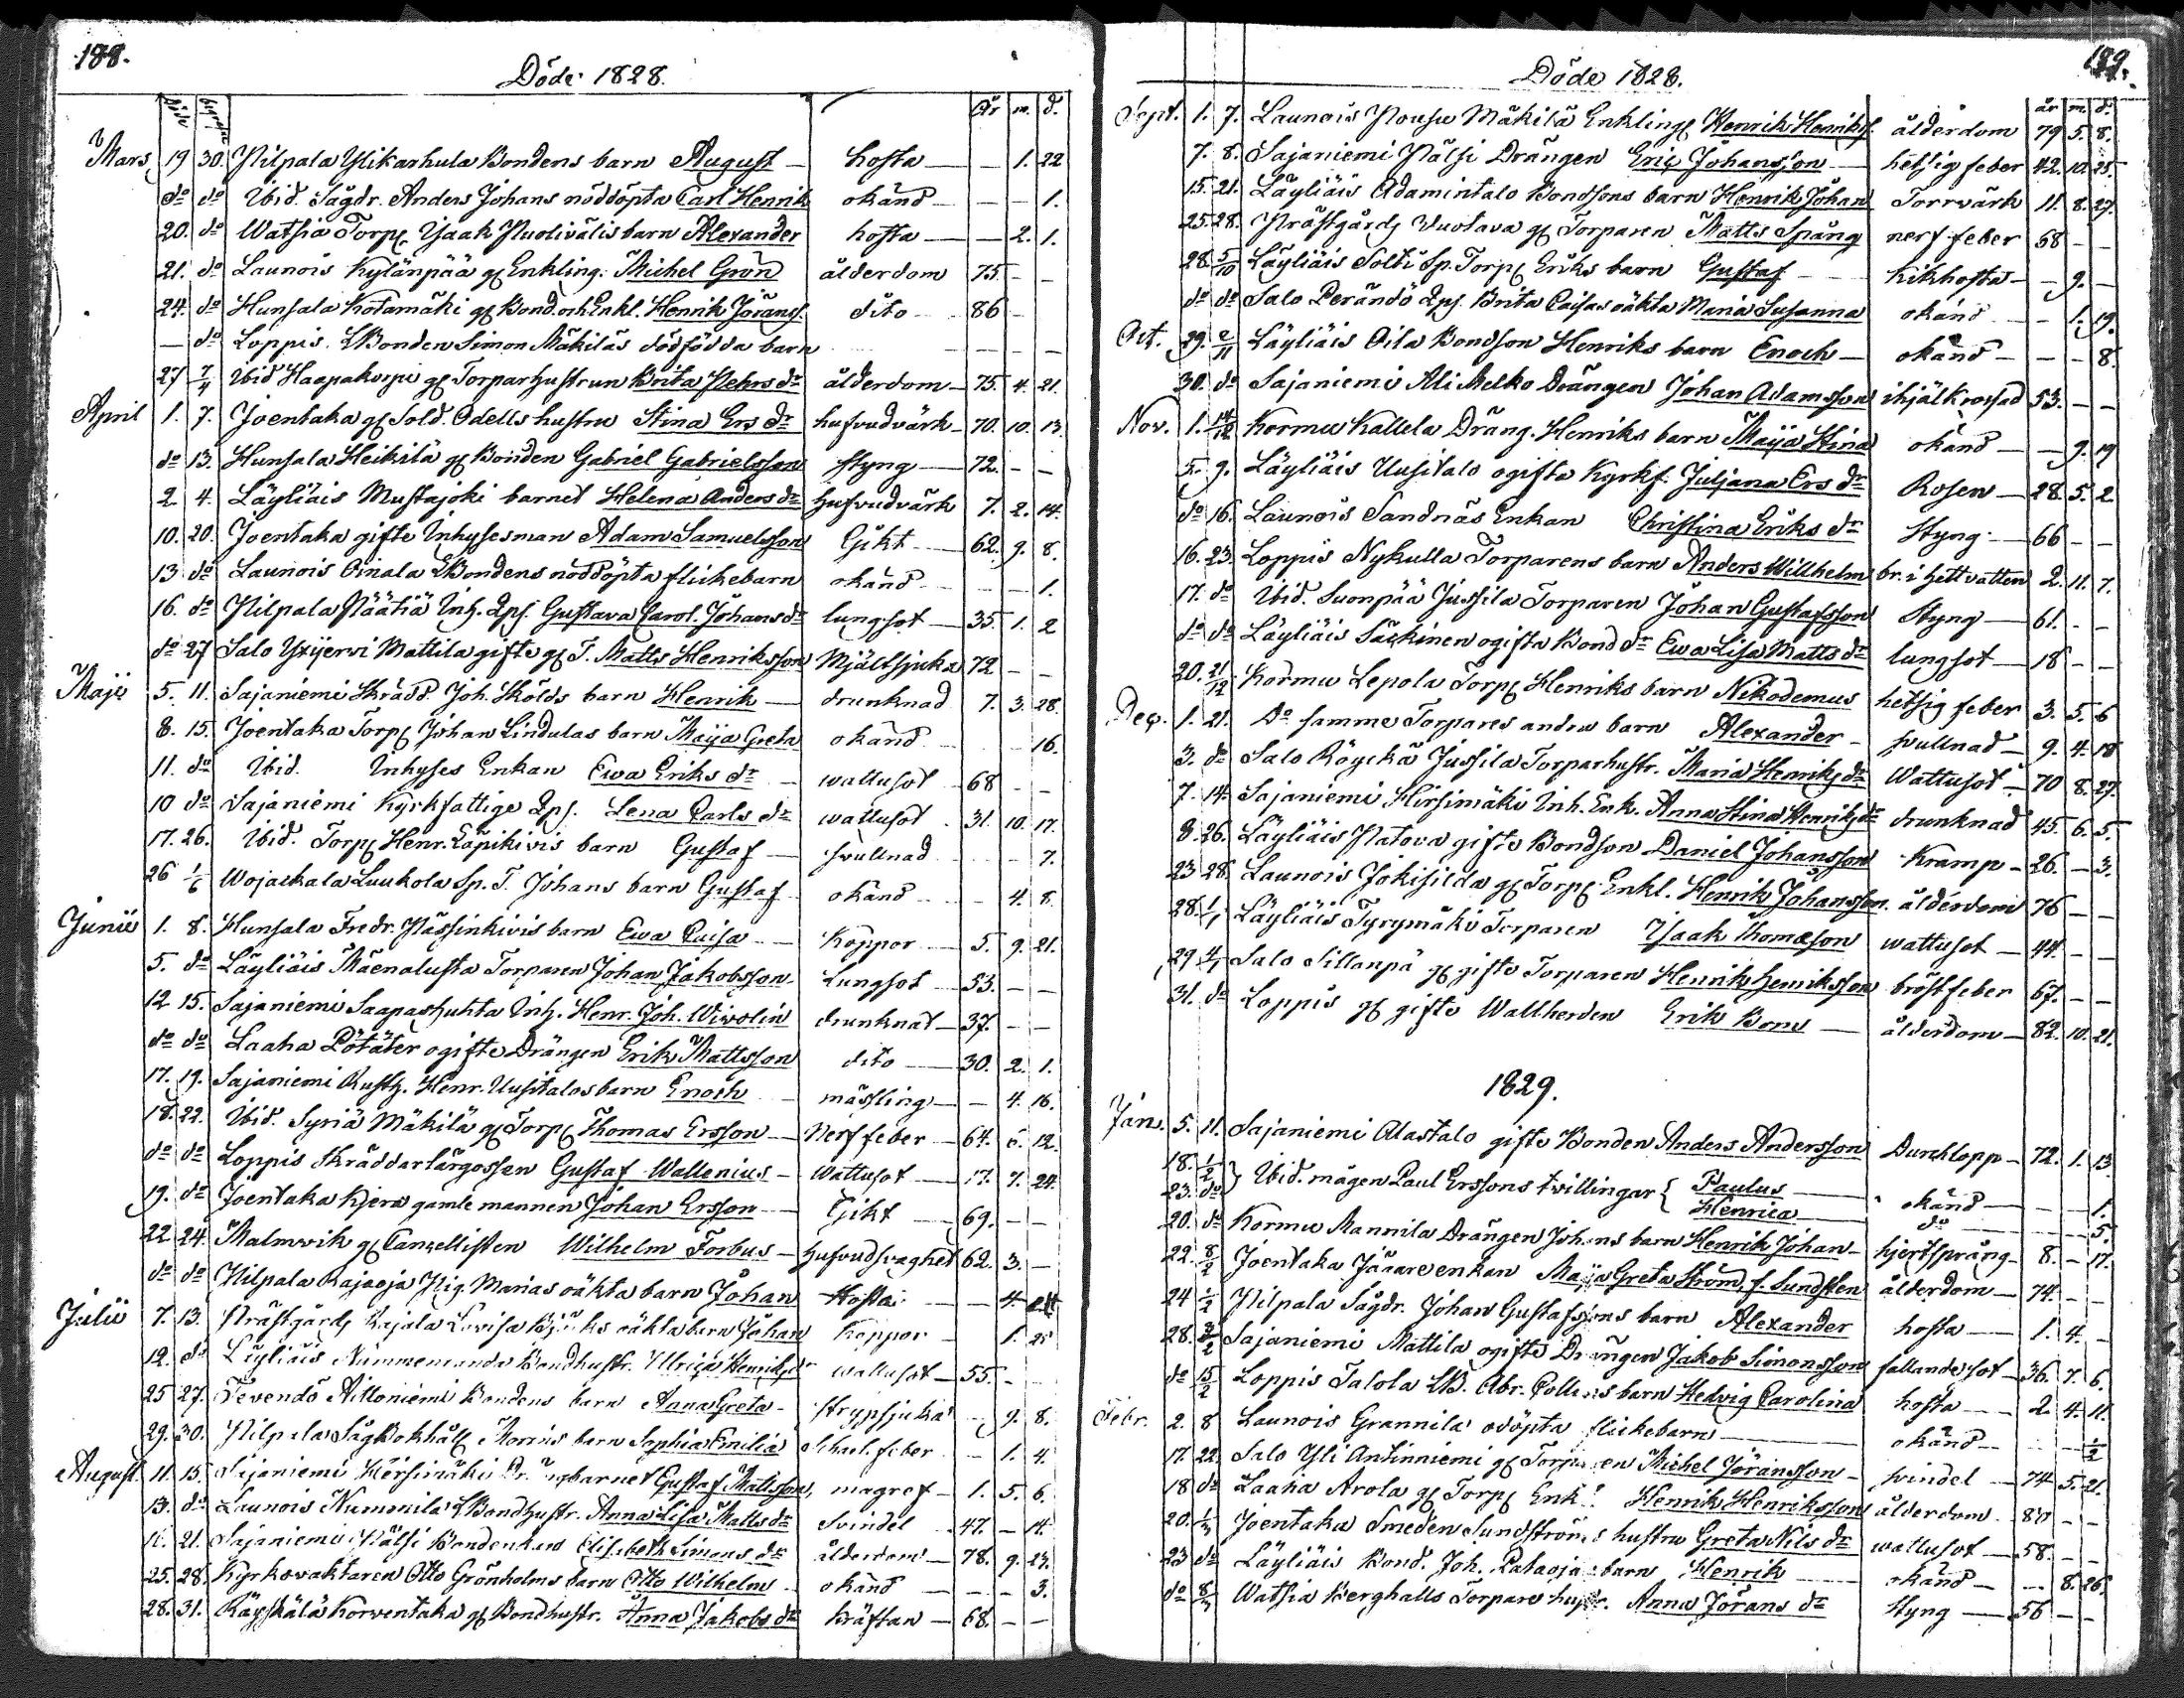 188.
Döde 1828.
Döde begrafne År m. d.
Mars 19 30. Pilpala Ylikarhula Bondens barn August — hosta — — 1. 22
do do Ibid. Sågdr. Anders Johans nöddöpta Carl Henrik okänd — — — 1.
20. do Watsia Torp. Isaak Nuolivälis barn Alexander hosta — — 2. 1.
21. do Launois Kylänpää gl Enkling. Michel Grön ålderdom 75. — —
24. do Hunsala Kotamäki gl Bond. och Enkl. Henrik Jörans. dito — 86 —
— do Loppis. LBonden Simon Mäkiläs dödfödda barn — — —
27 7/4 Ibid Haapakorpi gl Torparhustrun Brita Pehrs dr ålderdom — 75. 4. 21.
April 1. 7. Joentaka gl Sold. Odells hustru Stina Ers dr hufvudvärk — 70. 10. 13.
do 13. Hunsala Heikilä gl Bonden Gabriel Gabrielsson styng — 72. — —
2. 4. Läyliäis Mustajoki barnet Helena Anders dr hufvudvärk 7. 2. 14.
10. 20. Joentaka gifte Inhysesman Adam Samuelsson Gikt — 62. 9. 8.
13 do Launois Oinala LBondens nöddöpta flickebarn okänd — — 1.
16. do Pilpala Päätiä Inh. Qps. Gustava Carol. Johans dr lungsot — 35. 1. 2
do 27 Salo Yxijerwi Mattila gifte gl T. Matts Henriksson Mjältsjuka 72 — —
Maji 5. 11. Sajaniemi Skrädd. Joh. Skölds barn Henrik — drunknad 7. 3. 28.
8. 15. Joentaka Torp. Johan Lindulas barn Maija Greta okänd — — 16.
11. do Ibid. Inhyses Enkan Ewa Eriks dr — wattusot — 68 — —
10 do Sajaniemi Kyrkfattige Qps. Lena Carls dr wattusot . 31. 10. 17.
17. 26. Ibid. Torp. Henr. Läpikivis barn Gustaf — svullnad — — 7.
26 1/6 Wojackala Luukola Sp. T. Johans barn Gustaf okänd — — 4. 8.
Junii 1. 8. Hunsala Fredr. Pässinkivis barn Ewa Caisa — Koppor — 5. 9. 21.
5. do Läyliäis Mäenalusta Torparen Johan Jakobsson — Lungsot — 53. — —
12 15. Sajaniemi Saapashuhta Inh. Henr. Joh. Wiwolin drunknat — 37. — —
do do Laaha Pötäter ogifte Drängen Erik Mattsson dito — 30. 2. 1.
17. 19. Sajaniemi Rusth. Henr. Uusitalos barn Enoch — mässling — — 4. 16.
18. 22. Ibid. Syriä Mäkilä gl Torp. Thomas Ersson — Nerffeber — 64. 12.
do do Loppis Skräddarlärgossen Gustaf Wallenius — Wattusot — 17. 7. 24.
19. do Joentaka Kjerä gamle mannen Johan Ersson — Gikt — 69. — —
22 24. Malmwik gl Cancellisten Wilhelm Forbus — hufvudsvaghet 62. 3. —
do do Pilpala Rajaoja Pig. Marias oäkta barn Johan Hosta — — 4.
Julii 7. 13. Prästgårds Rajala Lovisa oäkta barn Johan Koppor — — 1. 25
12. do Läyliäis Nummenmanda Bondhustr. Ulrica Henriks dr wattusot — 55. —
25 27. Tevendö Aittoniemi Bondens barn Anna Greta — strypsjuka — 9. 8.
29. 30. Pilpala SågBokhåll. Morins barn Sophia Emilia Scharl. feber — 1. 4.
August. 11. 15. Sajaniemi Hersimäki barnet Gustaf Mattsson, magref — 1. 5. 6.
13. do Launois Nummila LBondhustr. Anna Lisa Matts dr Svindel — 47. — 14.
16. 21. Sajaniemi Pälsi Bondenkan Elisabeth Simons dr ålderdom — 78. 9. 23.
25. 28. Kyrkovaktaren Otto Grönholms barn Otto Wilhelm — okänd — — — 3.
28. 31. Räyskälä Korventaka gl Bondhustr. Anna Jakobs dr kräftan — 68. — —
189.
Döde 1828.
år m. d.
Sept. 1. 7. Launois Pousu Mäkilä Enkling. Henrik Henriks. ålderdom 79 5. 8.
7. 8. Sajaniemi Pälsi Drängen Eric Johansson — hetsig feber 42. 10. 25.
15. 21. Läyliäis Adamintalo Bondsons barn Henrik Johan Torrvärk 11. 8. 27.
25. 28. Prästgårds Uustava gl Torparen Matts Spång nerf feber 68 — —
28. 5/10 Läyliäis Solti Sp. Torp. Eriks barn Gustaf — kikhosta — — 9. —
do do Salo Perändö Qps. Brita Caisas oäkta Maria Susanna okänd — — 1. 19.
Oct. 29. 2/11 Läyliäis Oila Bondson Henriks barn Enoch — okänd — — — 8.
30. do Sajaniemi Ali Melko Drängen Johan Adamsson ihjälkrossad 53. — —
Nov. 1. 14/12 Kormu Kallela Dräng. Henriks barn Maija Stina okänd — — 9. 19
5. 9. Läyliäis Uusitalo ogifta Kyrkf. Juljana Ers dr Rosen — 28. 5. 2
do 16. Launois Sandnäs Enkan Christina Eriks dr Styng — 66 — —
16. 23. Loppis Nykulla Torparens barn Anders Willhelm br. i hett vatten 2. 11. 7.
17. do Ibid. Suonpää Jussila Torparen Johan Gustafsson Styng — 61. — —
do do Läyliäis Säckinen ogifta Bond dr Ewa Lisa Matts dr lungsot — 18 — —
20. 21/12 Kormu Lepola Torp. Henriks barn Nikodemus hetsig feber 3. 5. 6
Dec. 1. 21. Do samme Torpares andra barn Alexander — svullnad — 9. 4. 18
3. do Salo Röyckä Jussila Torparhustr. Maria Henriks dr Wattusot — 70 8. 27.
7. 14. Sajaniemi Hirsimäki Inh. Enk. Anna Stina Henriks dr drunknad 45. 6. 5.
8. 26. Läyliäis Patova gifte Bondson Daniel Johansson Kramp — 26. — 3.
23 28. Launois Jokisilda gl Torp. Enkl. Henrik Johansson. ålderdom 76 — —
28. 1/1 Läyliäis Tyrymäki Torparen Isaak Thomæson wattusot — 44. — —
29 4/1 Salo Sillanpä gl gifte Torparen Henrik Henriksson bröstfeber 67. — —
31. do Loppis gl gifte Wallherden Erik Bom — ålderdom — 82. 10. 21.
1829.
Jan. 5. 11. Sajaniemi Alastalo gifte Bonden Anders Andersson Durchlopp — 72. 1. 13
18. 1/2 } Ibid. mågen Paul Erssons tvillingar { Paulus — okänd — — — 1.
23. do Henrica — do — — 5.
20. do Kormu Mannila Drängen Johans barn Henrik Johan — hjertsprång — 8. — 17.
22. 8/2 Joentaka Jäaare enkan Maja Greta Ström, f. Sundsten ålderdom — 74. — —
24 1/2 Pilpala Sågdr. Johan Gustafssons barn Alexander hosta — 1. 4. —
28. 8/2 Sajaniemi Mattila ogifte Drängen Jakob Simonsson fallandesot — 36. 7. 6.
do 15/2 Loppis Talola LB. Abr. Collins barn Hedvig Carolina hosta — 2. 4. 11.
Febr. 2. 8 Launois Grannila odöpta flickebarn — okänd — — — 1/2
17. 22. Salo Yli Antinniemi gl Torparen Michel Jöransson — svindel — 74 5. 21.
18 do Laaha Arola gl Torp. Enk. Henrik Henriksson ålderdom. — —
20. 1/3 Joentaka Smeden Sundströms hustru Greta Nils dr wattusot — 58. — —
23 do Läyliäis Bond. Joh. Pataoja barn Henrik — okänd — — 8. 26.
do 8/3 Watsia Berghalls Torpare hustr. Anna Jörans dr Styng — 56 — —